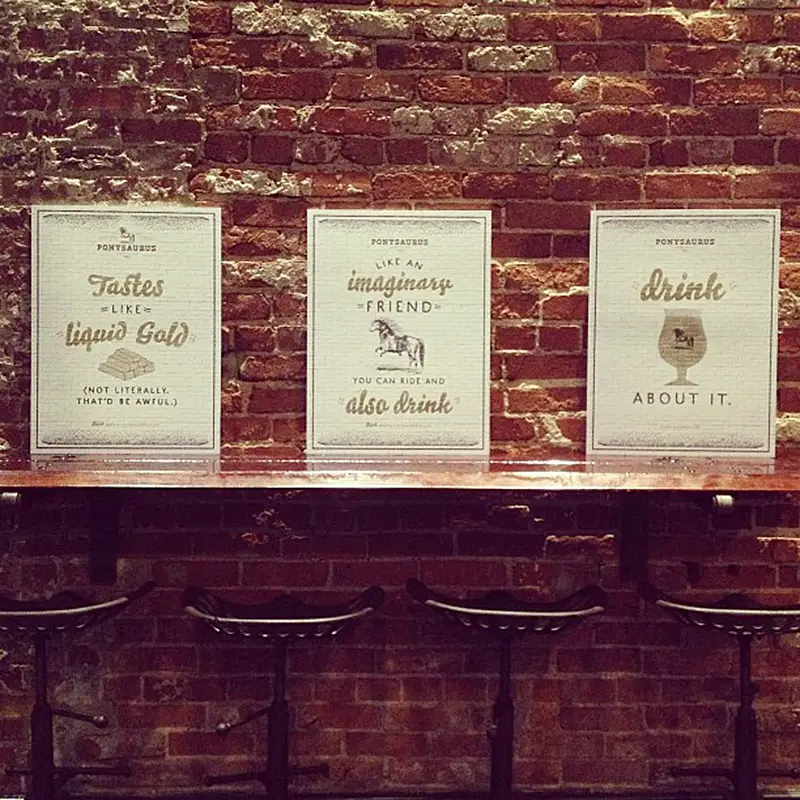 PONYSAURUS
Tastes
LIKE
liquid Gold
(NOT LITERALLY.
THAT'D BE AWFUL.)
PONYSAURUS
LIKE AN
imaginary
FRIEND
YOU CAN RIDE AND
also drink
PONYSAURUS
drink
ABOUT IT.